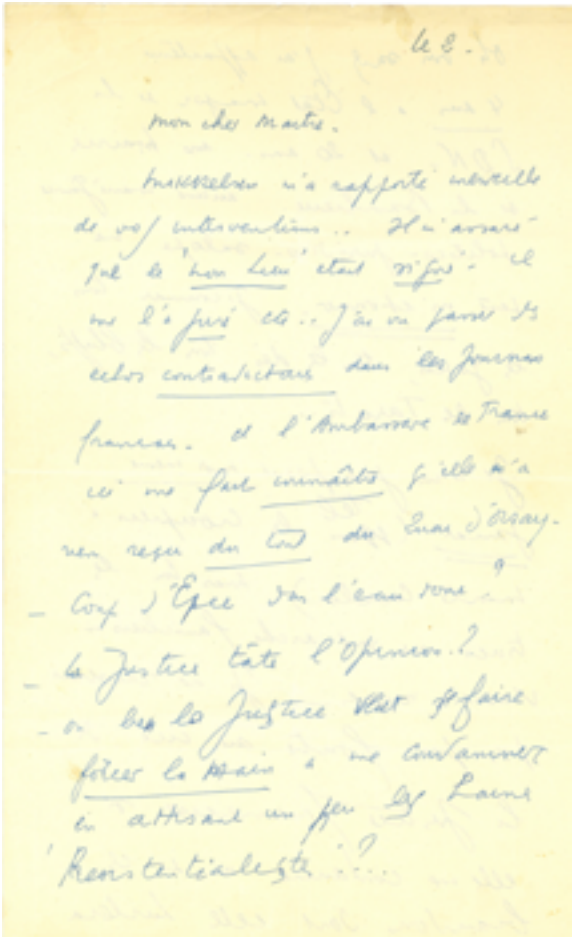 le 2.
mon cher Maitre.
Mikkelsen m'a rapporté merveille
de vos interventions.. Il m'assure
que le "non lieu" était signé - il
me l'a juré etc.. J'ai vu passer des
echos contradictoires dans les Journaux
français. et l'Ambassade de France
ici me fait connaître qu'elle n'a
rien reçu du tout du Quai d'Orsay -
- Coup d'Épée dans l'eau donc ?
- la Justice tâte l'Opinion.?
- ou bien la Justice veut se faire
forcer la main à me condamner
en attisant un peu les Haine